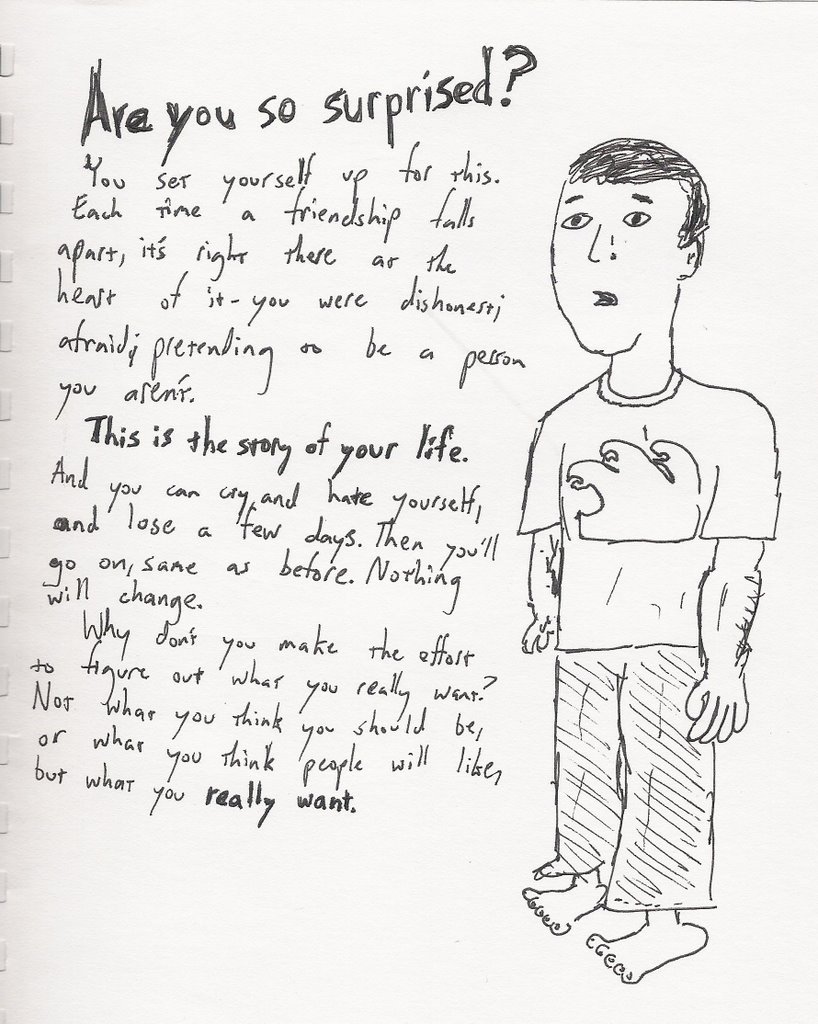 Are you so surprised?
You set yourself up for this.
Each time a friendship falls
apart, it's right there at the
heart of it - you were dishonest;
afraid; pretending to be a person
you aren't.
This is the story of your life.
And you can cry, and hate yourself,
and lose a few days. Then you'll
go on, same as before. Nothing
will change.
Why don't you make the effort
to figure out what you really want?
Not what you think you should be,
or what you think people will like,
but what you really want.